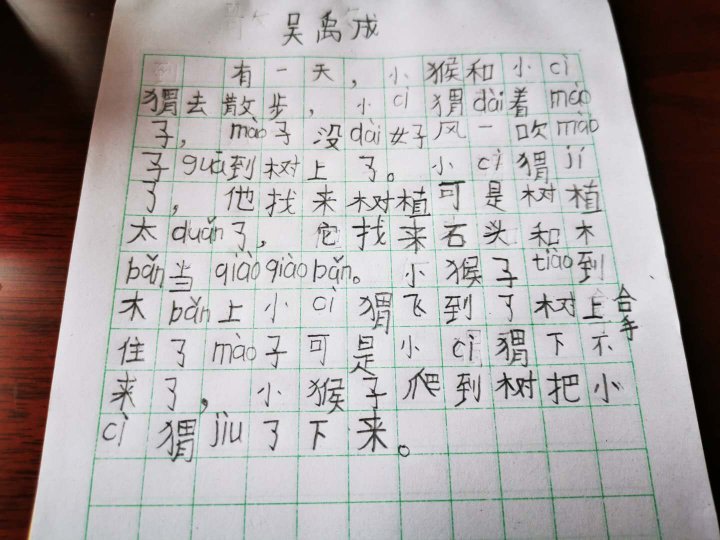 吴禹成
有一天，小猴和小cì
猬去散步，小cì猬dài着mào
子，mào子没dài好风一吹mào
子guā到树上了。小cì猬jí
了，他找来树植可是树植
太duǎn了，它找来石头和木
bǎn当qiào qiào bǎn。小猴子tiào到
木bǎn上小cì猬飞到了树上拿
住了mào子可是小cì猬下不
来了，小猴子爬到树把小
cì猬jiu了下来。